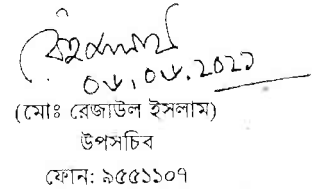 ০৮.০৮.২০২১
(মোঃ রেজাউল ইসলাম)
উপসচিব
ফোন: ৯৫৫১১০৭